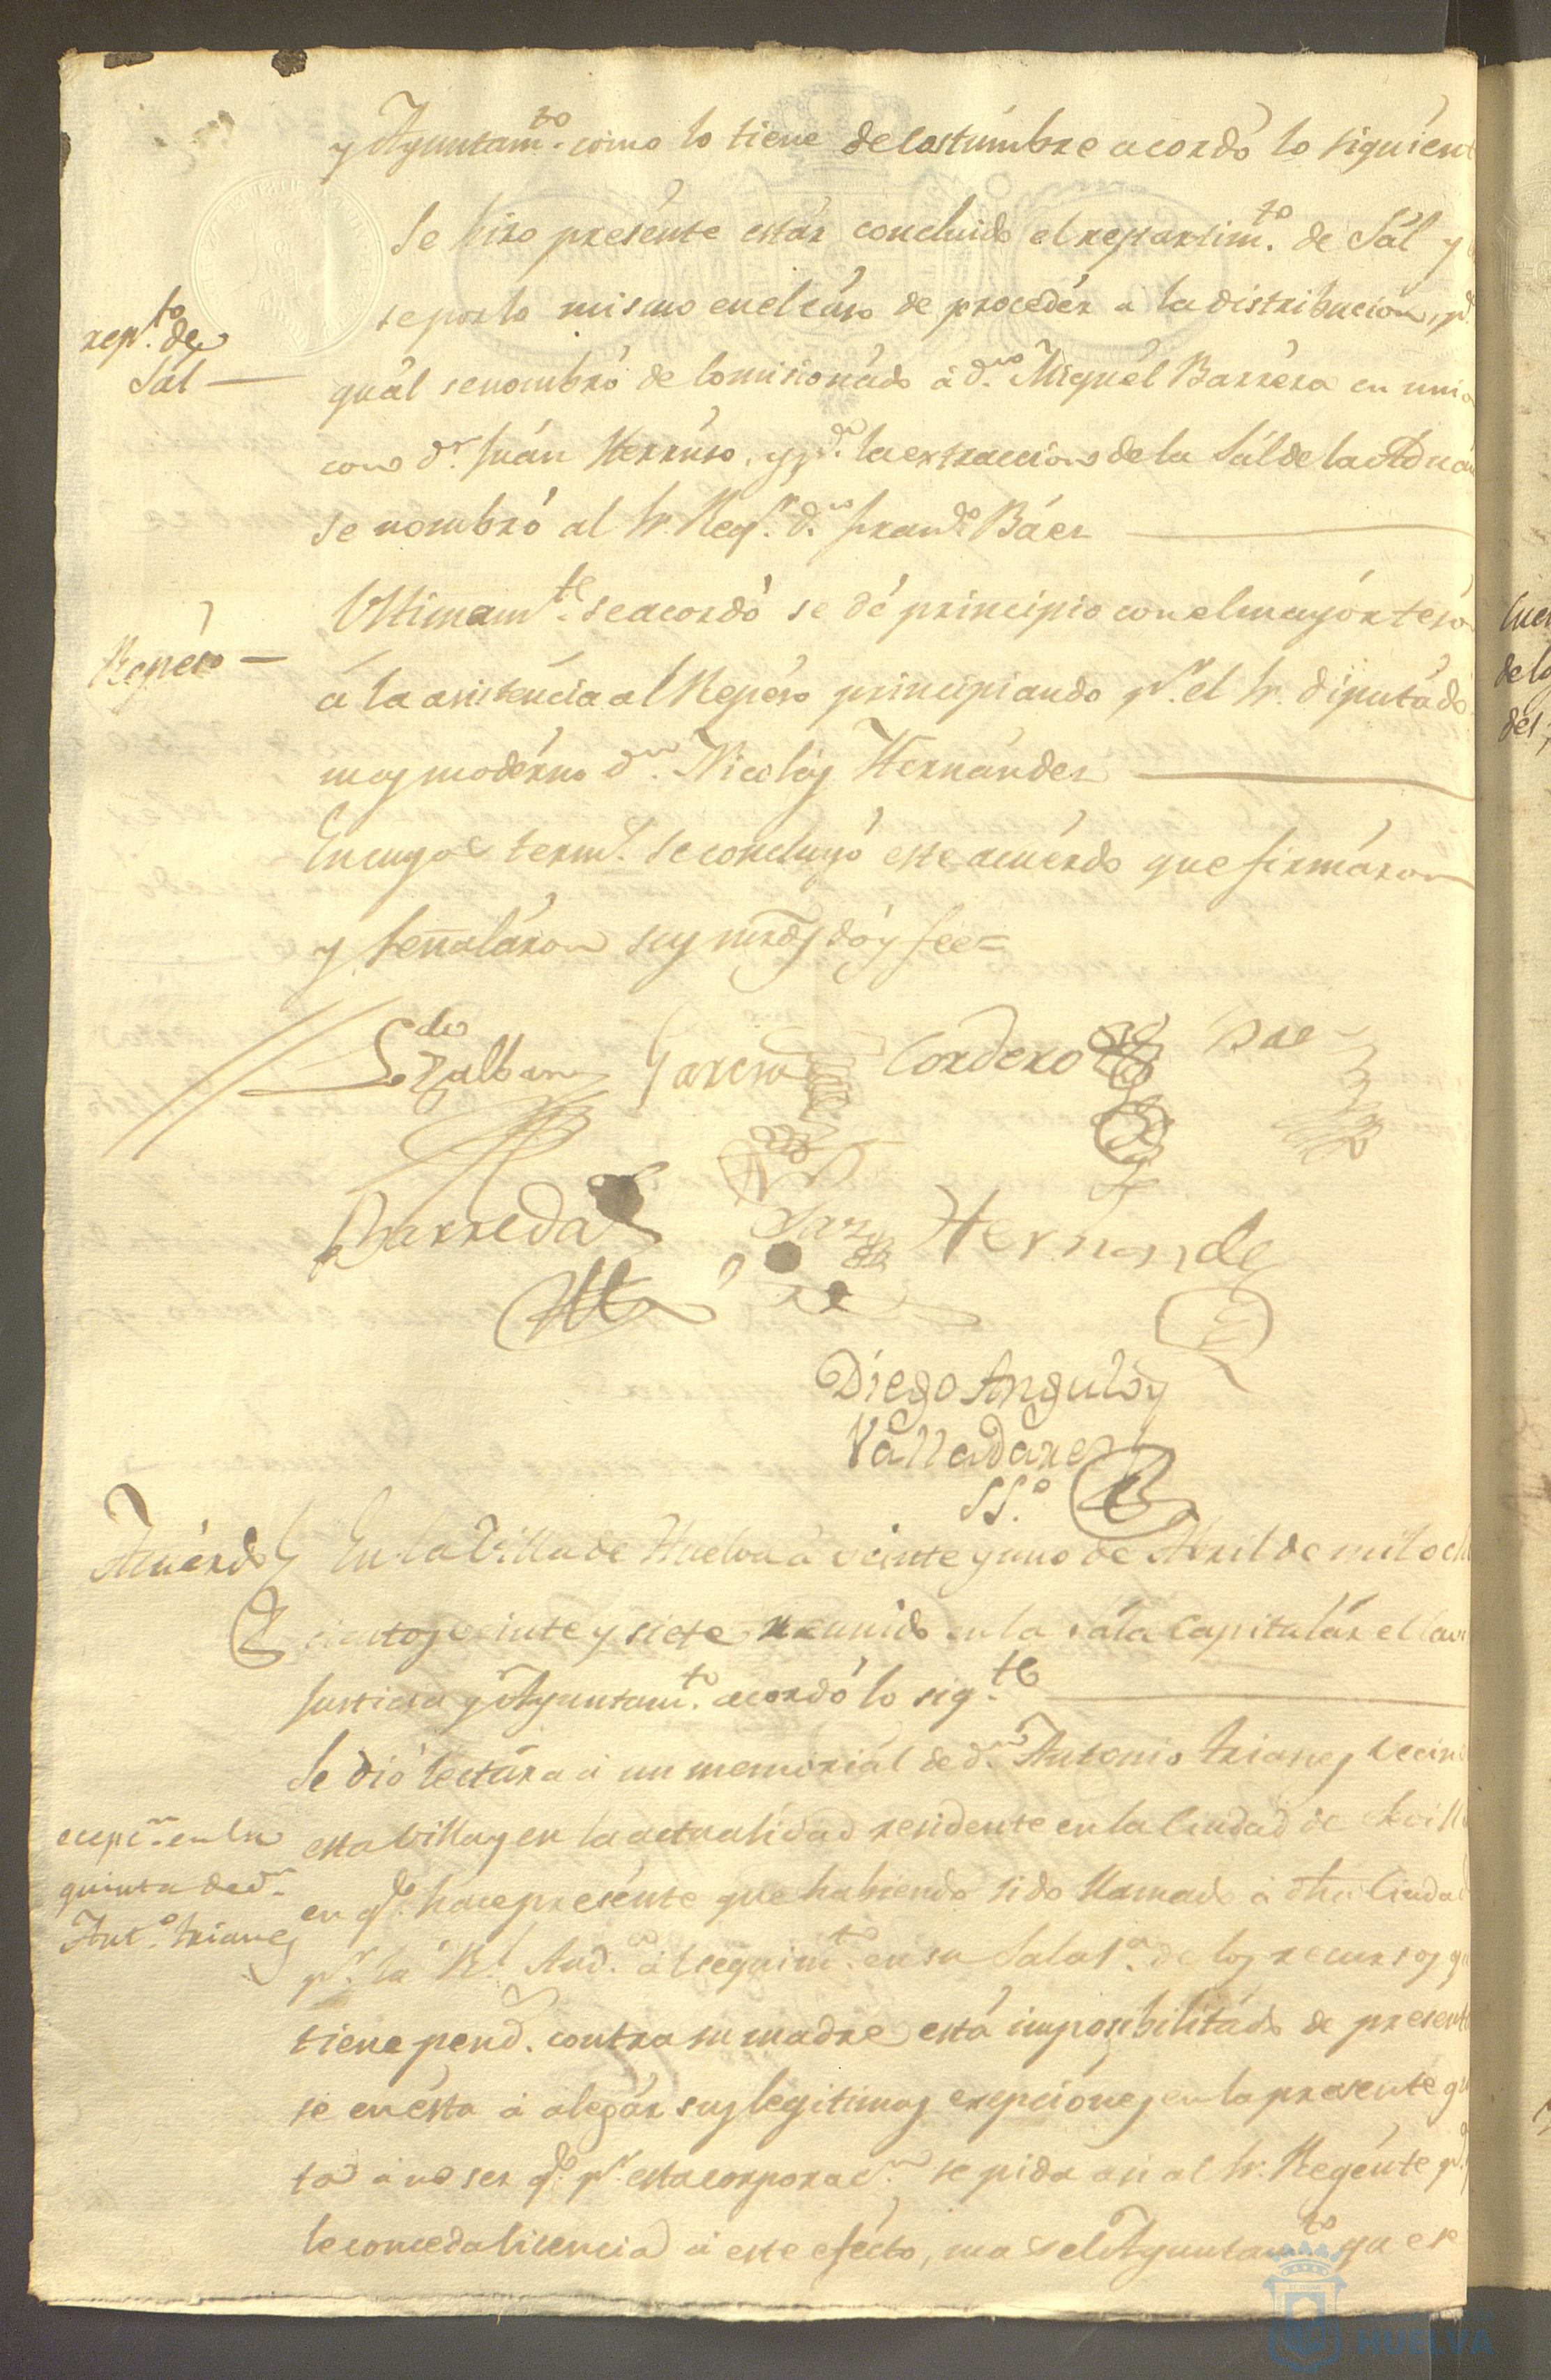 y Ayuntam.to como lo tiene de costúmbre acordó lo siguient
Se hizo presénte estár concluido el repartim.to de Sál y
rep.to de
Sál —
se por lo mismo en el cáso de procedér a la distribucion, p.a
quál se nombró de Comisionádo á d.n Miguél Barréra en unio
con d.n Juán Herrúso, y p.a la extraccion de la Sál de la Aduan
se nombró al Sr. Reg.r d.n Fran.co Báez
Repéso —
Ultimam.te se acordó se dé princípio con el mayór tesón
á la asisténcia al Repéso principiando p.r el Sr. diputádo
mas modérno d.n Nicolás Hernández
En cuyos term.s se concluyó este acuérdo que firmáron
y señaláron sus mrds doy fee =
Garcia Cordero Bae
Barreda Hernandez
Diego Angulo y
Valladares
SS.o
Acuérdo En la Villa de Huelva á veinte y uno de Abril de mil och
cientos veinte y siete reunido en la sála Capitulár el Cav
Justicia y Ayuntam.to acordó lo sig.te
Se dió lectúra á un memoriál de d.n Antonio Trianes vecin
ecepc.n en la
quinta de d.n
Ant.o Trianes
esta Villa y en la actualidad residente en la Ciudad de Sevill
en q.e hace presénte que habiendo sido llamado á dha Ciudad
p.r la R.l Aud.a al seguim.to en su Sala 1.a de los recursos qu
tiene pend. contra su madre está imposibilitádo de present
se en ésta á alegár sus legitimas exepciónes en la presente qu
ta á no ser q.e p.r esta corporac.n se pida asi al Sr. Regénte p.a
le conceda licencia á este efécto, mas el Ayuntam.to que se
HUELVA